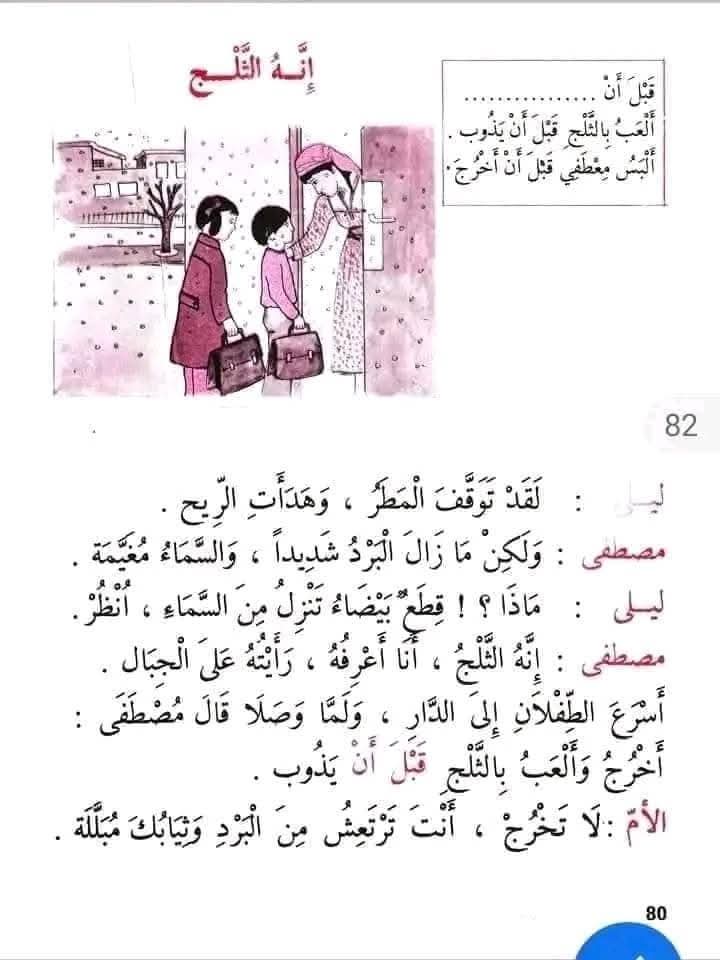 إِنَّـهُ الثَّلْـــج
قَبْلَ أَنْ ................
أَلْعَبُ بِالثَّلْجِ قَبْلَ أَنْ يَذُوب .
أَلْبَسُ مِعْطَفِي قَبْلَ أَنْ أَخْرُجَ.
82
ليـلى : لَقَدْ تَوَقَّفَ الْمَطَرُ ، وَهَدَأَتِ الرِّيح .
مصطفى : وَلَكِنْ مَا زَالَ الْبَرْدُ شَدِيداً ، وَالسَّمَاءُ مُغَيَّمَة .
ليـلى : مَاذَا ؟ ! قِطَعٌ بَيْضَاءُ تَنْزِلُ مِنَ السَّمَاءِ ، اُنْظُرْ .
مصطفى : إِنَّهُ الثَّلْجُ ، أَنَا أَعْرِفُهُ ، رَأَيْتُهُ عَلَى الْجِبَال .
أَسْرَعَ الطِّفْلَانِ إِلَى الدَّارِ ، وَلَمَّا وَصَلَا قَالَ مُصْطَفَى :
أَخْرُجُ وَأَلْعَبُ بِالثَّلْجِ قَبْلَ أَنْ يَذُوب .
الأمّ : لَا تَخْرُجْ ، أَنْتَ تَرْتَعِشُ مِنَ الْبَرْدِ وَثِيَابُكَ مُبَلَّلَة .
80